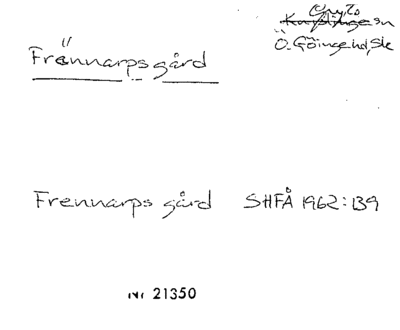 Gryts
Knislinge sn
Ö. Göinge hd, Sk
Frännarps gård
Frennarps gård SHFÅ 1962:139
Nr 21350